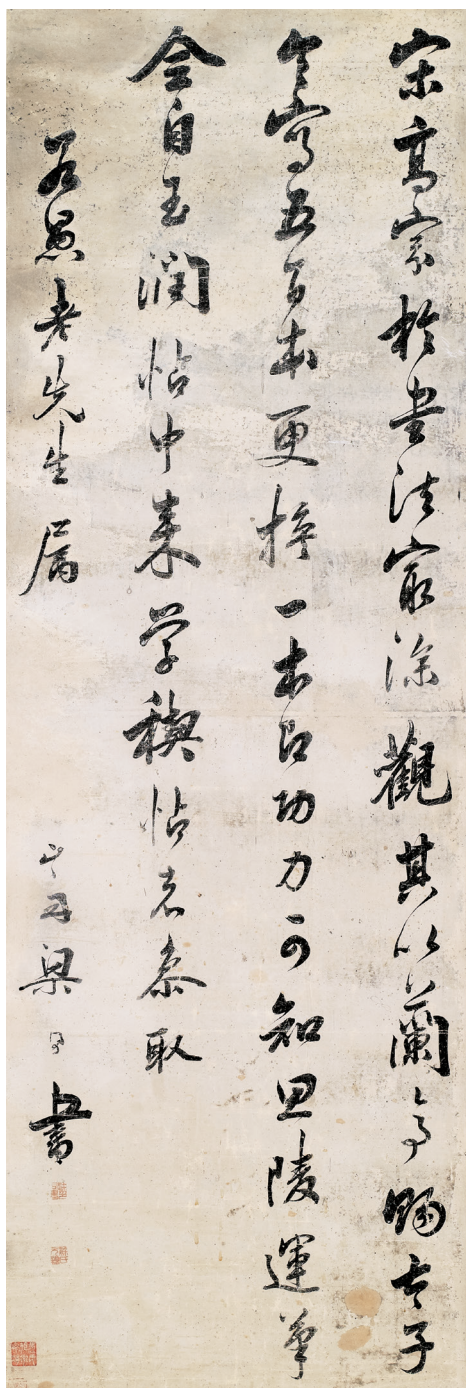 宋高宗於书法最深觀其以蘭亭賜太子
令寫五百本更換一本即功力可知思陵運筆
全自玉潤帖中来学稧帖者参取
若愚老先生属
山舟梁同書